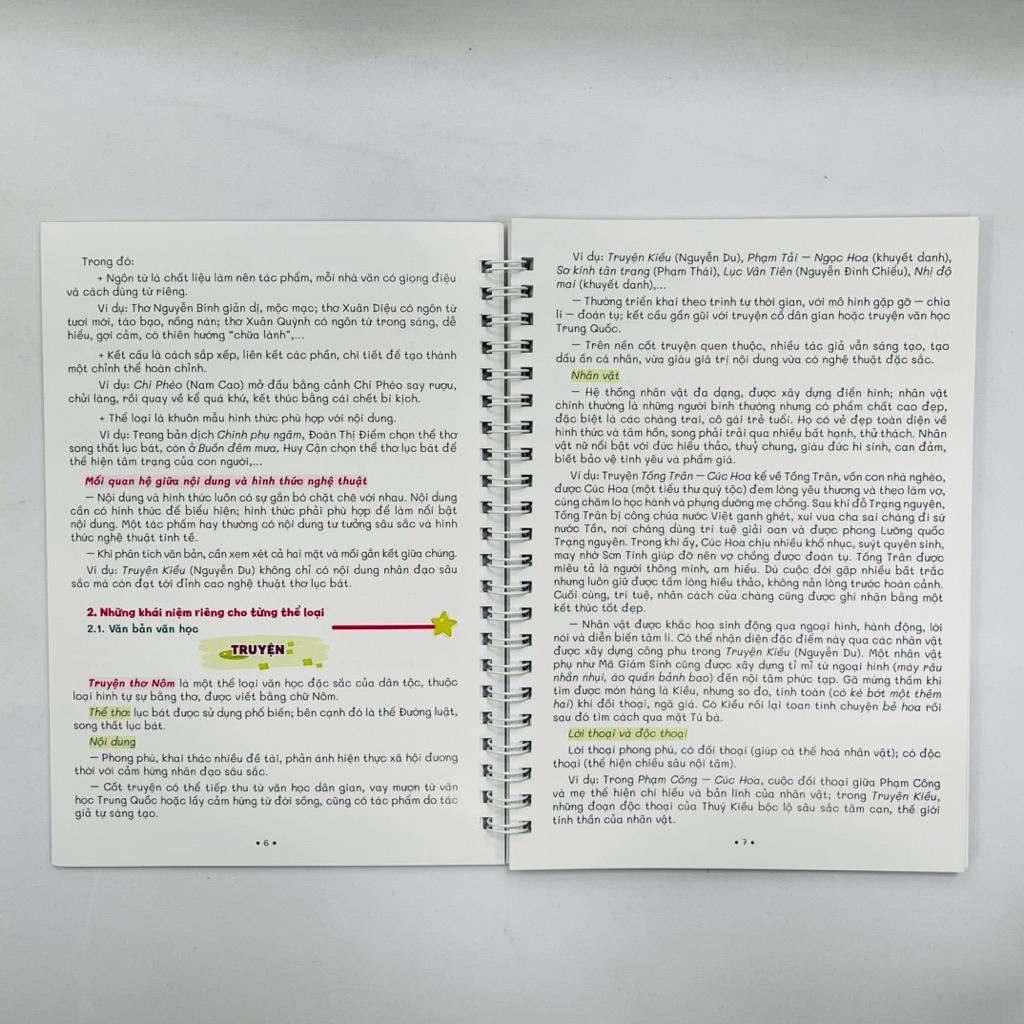 Trong đó:
+ Ngôn từ là chất liệu làm nên tác phẩm, mỗi nhà văn có giọng điệu
và cách dùng từ riêng.
Ví dụ: Thơ Nguyễn Bính giản dị, mộc mạc; thơ Xuân Diệu có ngôn từ
tươi mới, táo bạo, nồng nàn; thơ Xuân Quỳnh có ngôn từ trong sáng, dễ
hiểu, gợi cảm, có thiên hướng “chữa lành”,...
+ Kết cấu là cách sắp xếp, liên kết các phần, chi tiết để tạo thành
một chỉnh thể hoàn chỉnh.
Ví dụ: Chí Phèo (Nam Cao) mở đầu bằng cảnh Chí Phèo say rượu,
chửi làng, rồi quay về kể quá khứ, kết thúc bằng cái chết bi kịch.
+ Thể loại là khuôn mẫu hình thức phù hợp với nội dung.
Ví dụ: Trong bản dịch Chinh phụ ngâm, Đoàn Thị Điểm chọn thể thơ
song thất lục bát, còn ở Buồn đêm mưa, Huy Cận chọn thể thơ lục bát để
thể hiện tâm trạng của con người,...
Mối quan hệ giữa nội dung và hình thức nghệ thuật
– Nội dung và hình thức luôn có sự gắn bó chặt chẽ với nhau. Nội dung
cần có hình thức để biểu hiện; hình thức phải phù hợp để làm nổi bật
nội dung. Một tác phẩm hay thường có nội dung tư tưởng sâu sắc và hình
thức nghệ thuật tinh tế.
– Khi phân tích văn bản, cần xem xét cả hai mặt và mối gắn kết giữa chúng.
Ví dụ: Truyện Kiều (Nguyễn Du) không chỉ có nội dung nhân đạo sâu
sắc mà còn đạt tới đỉnh cao nghệ thuật thơ lục bát.
2. Những khái niệm riêng cho từng thể loại
2.1. Văn bản văn học
TRUYỆN
Truyện thơ Nôm là một thể loại văn học đặc sắc của dân tộc, thuộc
loại hình tự sự bằng thơ, được viết bằng chữ Nôm.
Thể thơ: lục bát được sử dụng phổ biến; bên cạnh đó là thể Đường luật,
song thất lục bát.
Nội dung
– Phong phú, khai thác nhiều đề tài, phản ánh hiện thực xã hội đương
thời với cảm hứng nhân đạo sâu sắc.
– Cốt truyện có thể tiếp thu từ văn học dân gian, vay mượn từ văn
học Trung Quốc hoặc lấy cảm hứng từ đời sống, cũng có tác phẩm do tác
giả tự sáng tạo.
• 6 •
Ví dụ: Truyện Kiều (Nguyễn Du), Phạm Tải – Ngọc Hoa (khuyết danh),
Sơ kính tân trang (Phạm Thái), Lục Vân Tiên (Nguyễn Đình Chiểu), Nhị độ
mai (khuyết danh),...
– Thường triển khai theo trình tự thời gian, với mô hình gặp gỡ – chia
li – đoàn tụ; kết cấu gần gũi với truyện cổ dân gian hoặc truyện văn học
Trung Quốc.
– Trên nền cốt truyện quen thuộc, nhiều tác giả vẫn sáng tạo, tạo
dấu ấn cá nhân, vừa giàu giá trị nội dung vừa có nghệ thuật đặc sắc.
Nhân vật
– Hệ thống nhân vật đa dạng, được xây dựng điển hình; nhân vật
chính thường là những người bình thường nhưng có phẩm chất cao đẹp,
đặc biệt là các chàng trai, cô gái trẻ tuổi. Họ có vẻ đẹp toàn diện về
hình thức và tâm hồn, song phải trải qua nhiều bất hạnh, thử thách. Nhân
vật nữ nổi bật với đức hiếu thảo, thuỷ chung, giàu đức hi sinh, can đảm,
biết bảo vệ tình yêu và phẩm giá.
Ví dụ: Truyện Tống Trân – Cúc Hoa kể về Tống Trân, vốn con nhà nghèo,
được Cúc Hoa (một tiểu thư quý tộc) đem lòng yêu thương và theo làm vợ,
cùng chăm lo học hành và phụng dưỡng mẹ chồng. Sau khi đỗ Trạng nguyên,
Tống Trân bị công chúa nước Việt ganh ghét, xui vua cha sai chàng đi sứ
nước Tần, nơi chàng dùng trí tuệ giải oan và được phong Lưỡng quốc
Trạng nguyên. Trong khi ấy, Cúc Hoa chịu nhiều khổ nhục, suýt quyên sinh,
may nhờ Sơn Tinh giúp đỡ nên vợ chồng được đoàn tụ. Tống Trân được
miêu tả là người thông minh, am hiểu. Dù cuộc đời gặp nhiều bất trắc
nhưng luôn giữ được tấm lòng hiếu thảo, không nản lòng trước hoàn cảnh.
Cuối cùng, trí tuệ, nhân cách của chàng cũng được ghi nhận bằng một
kết thúc tốt đẹp.
– Nhân vật được khắc hoạ sinh động qua ngoại hình, hành động, lời
nói và diễn biến tâm lí. Có thể nhận diện đặc điểm này qua các nhân vật
được xây dựng công phu trong Truyện Kiều (Nguyễn Du). Một nhân vật
phụ như Mã Giám Sinh cũng được xây dựng tỉ mỉ từ ngoại hình (mày râu
nhẵn nhụi, áo quần bảnh bao) đến nội tâm phức tạp. Gã mừng thầm khi
tìm được món hàng là Kiều, nhưng so đo, tính toán (cò kè bớt một thêm
hai) khi đối thoại, ngã giá. Có Kiều rồi lại toan tính chuyện bẻ hoa rồi
sau đó tìm cách qua mặt Tú bà.
Lời thoại và độc thoại
Lời thoại phong phú, có đối thoại (giúp cá thể hoá nhân vật); có độc
thoại (thể hiện chiều sâu nội tâm).
Ví dụ: Trong Phạm Công – Cúc Hoa, cuộc đối thoại giữa Phạm Công
và mẹ thể hiện chí hiếu và bản lĩnh của nhân vật; trong Truyện Kiều,
những đoạn độc thoại của Thuý Kiều bộc lộ sâu sắc tâm can, thế giới
tinh thần của nhân vật.
• 7 •